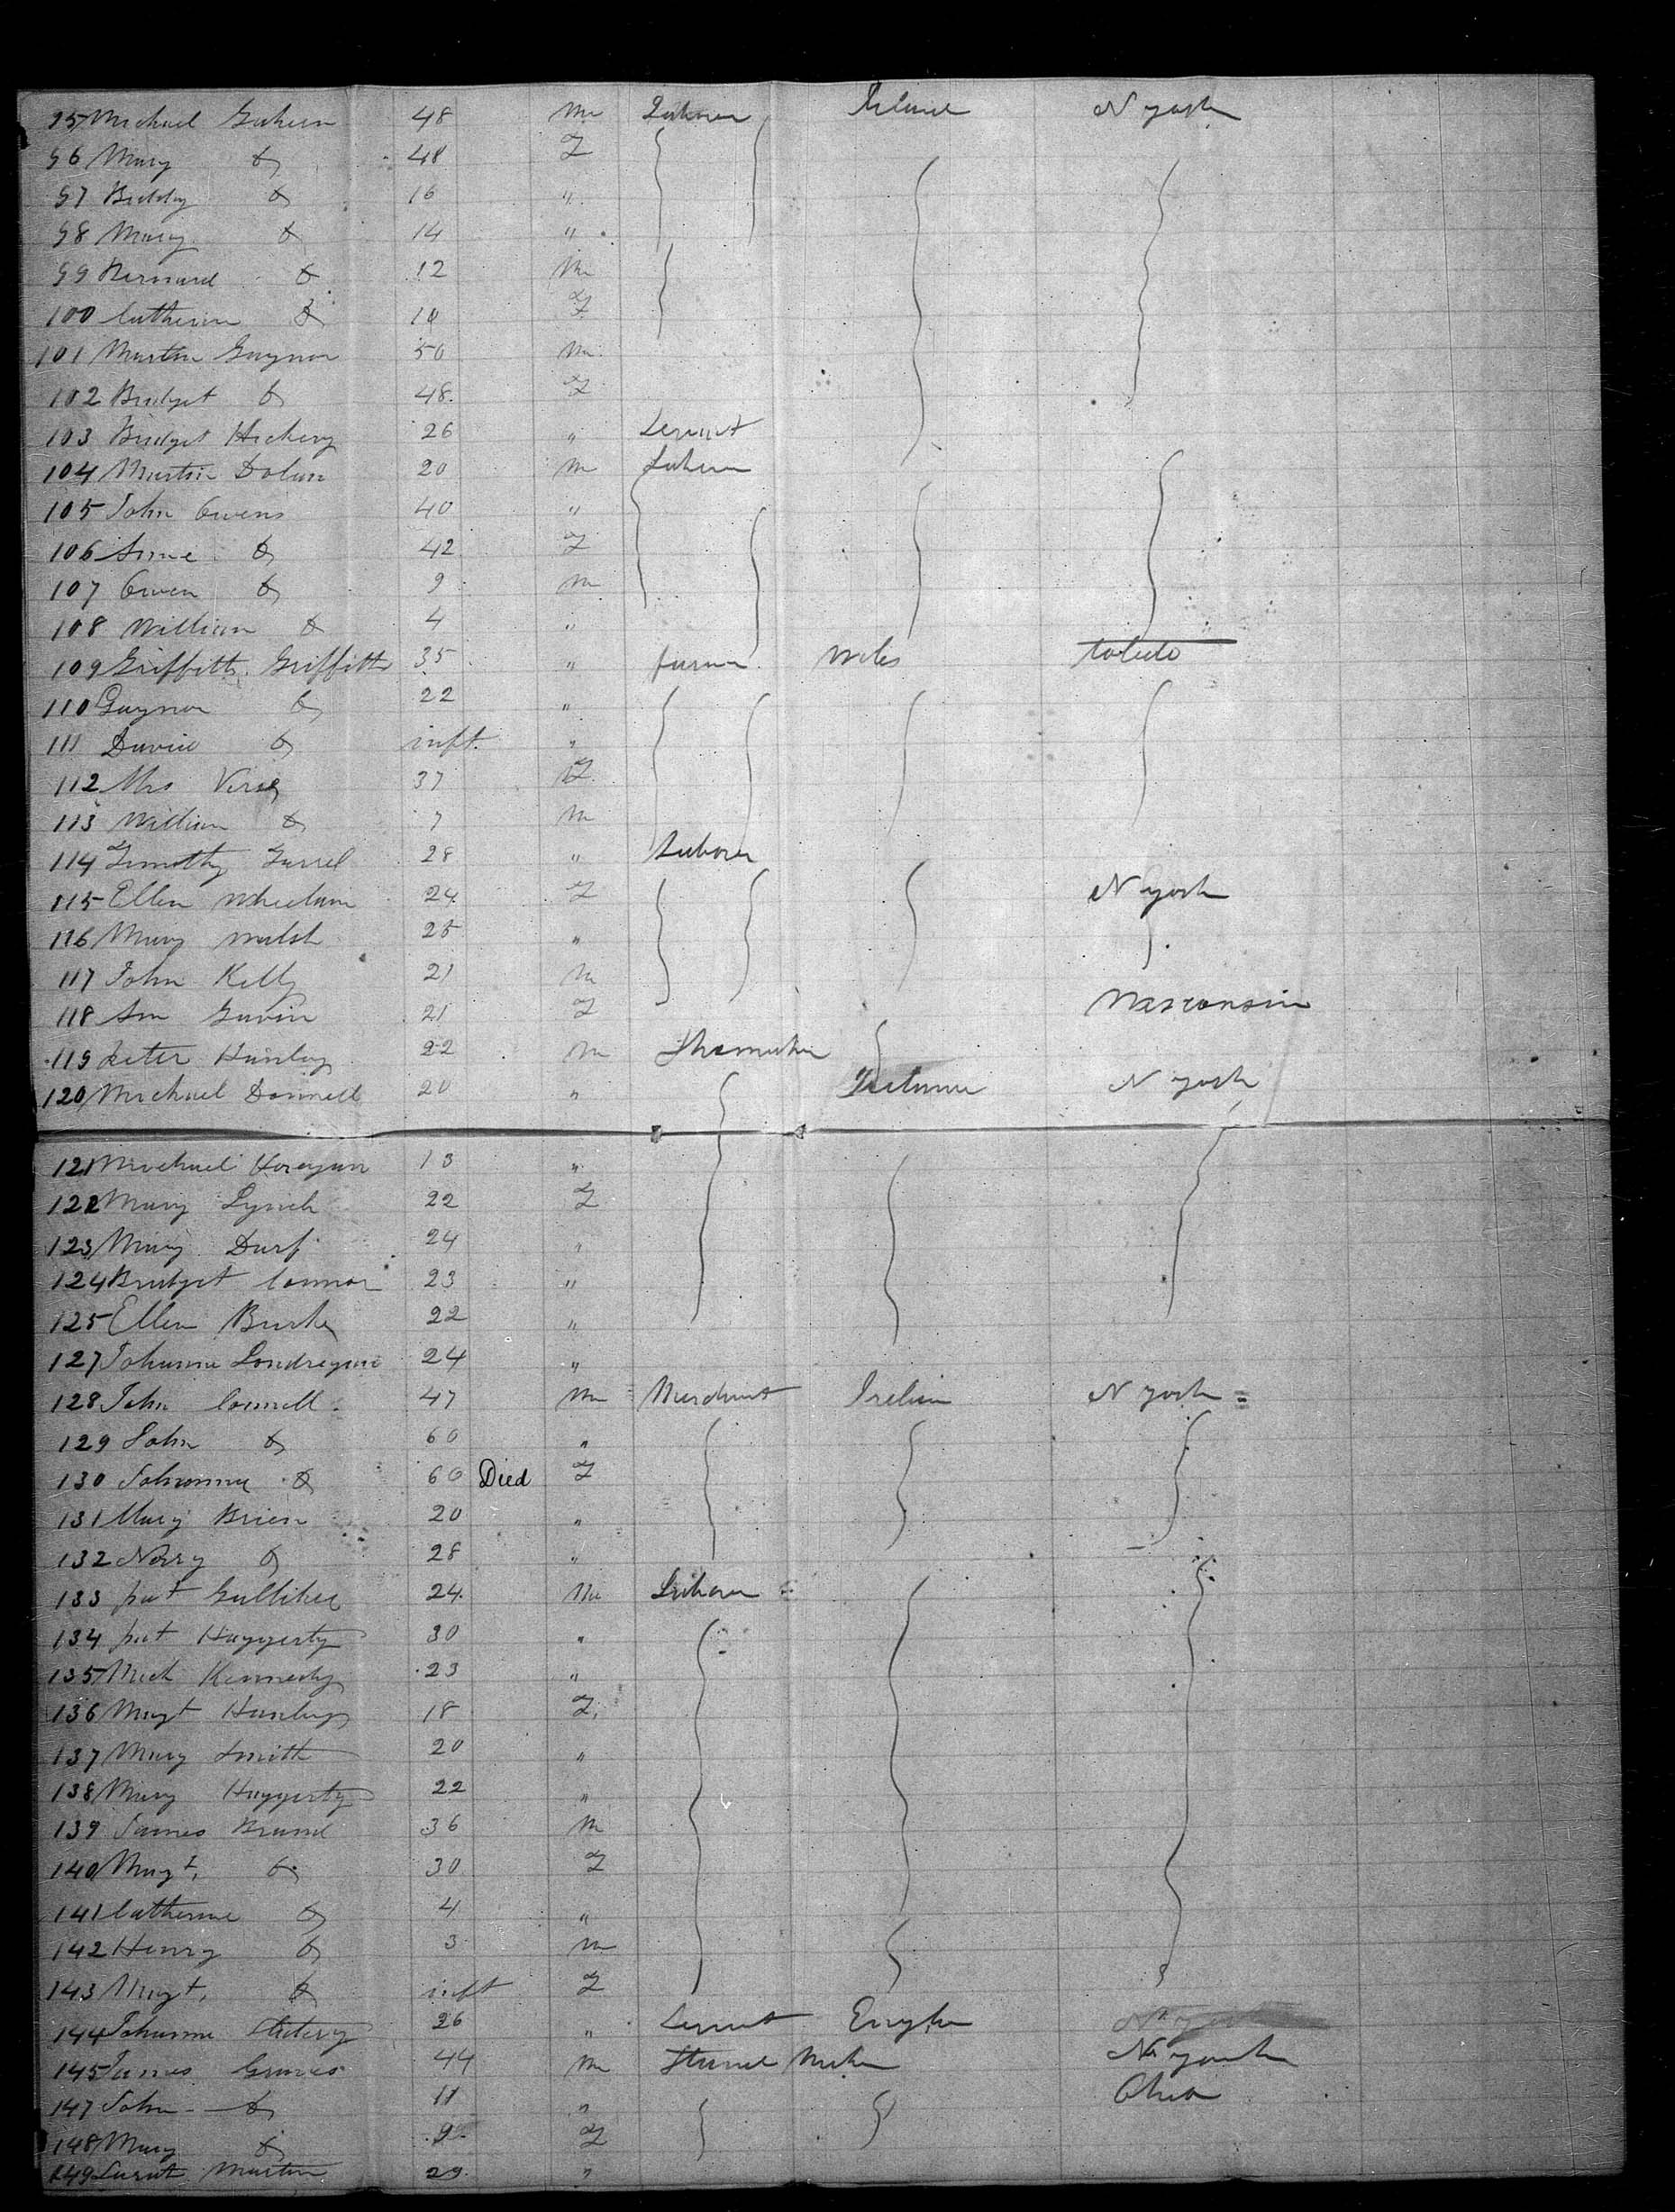 95 Michael Gaheen 48 M Laborer Ireland N york
96 Mary Do 48 F
97 Biddy Do 16 "
98 Mary Do 14 "
99 Bernard Do 12 M
100 Catherin Do 10 F
101 Martin Gaynor 50 M
102 Bridget Do 48 F
103 Bridget Hickery 26 " Servant
104 Martin Dolan 20 M Laborer
105 John Owens 40 "
106 Anne Do 42 F
107 Owen Do 9 M
108 William Do 4 "
109 Griffith Griffith 35 " farmer Wales toledo
110 Gaynor Do 22 "
111 David Do inft. "
112 Mrs 37 F
113 William Do 7 M
114 Timothy Farrel 28 " Laborer
115 Ellen Wheelan 24 F N york
116 Mary Walsh 25 "
117 John Kelly 21 M
118 Ann Gavin 21 F Wisconsin
119 peter Hanley 22 M Shoemaker
120 Michael Donnell 20 " Ireland N york
121 Michael Horagan 13 "
122 Mary Lynch 22 F
123 Mary Duff 24 "
124 Bridget Connor 23 "
125 Ellen Burke 22 "
127 Johanna Londregan 24 "
128 John Connell 47 M Merchant Irelan N york
129 John Do 60 "
130 Johanna Do 60 Died F
131 Mary Brien 20 "
132 Norry Do 28 "
133 pat 24 M Laborer
134 pat Haggerty 30 "
135 Mich Kennedy 23 "
136 Magt Hanley 18 F
137 Mary Smith 20 "
138 Mary Haggerty 22 "
139 James Brand 36 M
140 Magt. Do 30 F
141 Catherine Do 4 "
142 Henry Do 3 M
143 Magt. Do inft F
144 Johanna 26 " Servant N york
145 James Graves 44 M N york
147 John Do 11 " Ohio
148 Mary Do 9 F
149 Sarah Martin 29 "